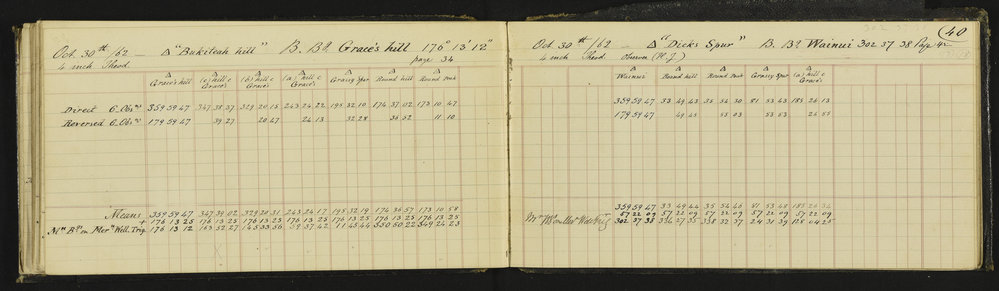 Oct. 30th /62 — △ "Bukiteah hill" B. Bg. Grace's hill 176° 13' 12"
4 inch Theod. page 34
△ Grace's hill △ (c) hill c Grace's △ (b) hill c Grace's △ (a) hill c Grace's △ Grassy Spur △ Round hill △ Round Peak
Direct 6. Obsns 359 59 47 347 38 37 329 20 15 243 24 22 195 32 10 174 37 02 173 10 47
Reversed 6. Obsns 179 59 47 39 27 20 47 24 13 32 28 36 52 11 10
Means 359 59 47 347 39 02 329 20 31 243 24 17 195 32 19 174 36 57 173 10 58
+ 176 13 25 176 13 25 176 13 25 176 13 25 176 13 25 176 13 25 176 13 25
Mn Bgs. on Merdn Well. Trig. 176 13 12 163 52 27 145 33 56 59 37 42 11 45 44 350 50 22 349 24 23
40
Oct. 30th /62 — △ "Dicks Spur" B. Bg. Wainui 302 37 38 Page 42
4 inch Theod. Observn (H. J.)
△ Wainui △ Round hill △ Round Peak △ Grassy Spur △ (a) hill c Grace's
359 59 47 33 49 43 35 54 30 81 53 43 185 26 13
179 59 47 49 45 55 03 53 53 26 55
359 59 47 33 49 44 35 54 46 81 53 48 185 26 32
57 22 09 57 22 09 57 22 09 57 22 09 57 22 09
302 37 38 336 27 35 338 32 37 24 31 39 128 04 23